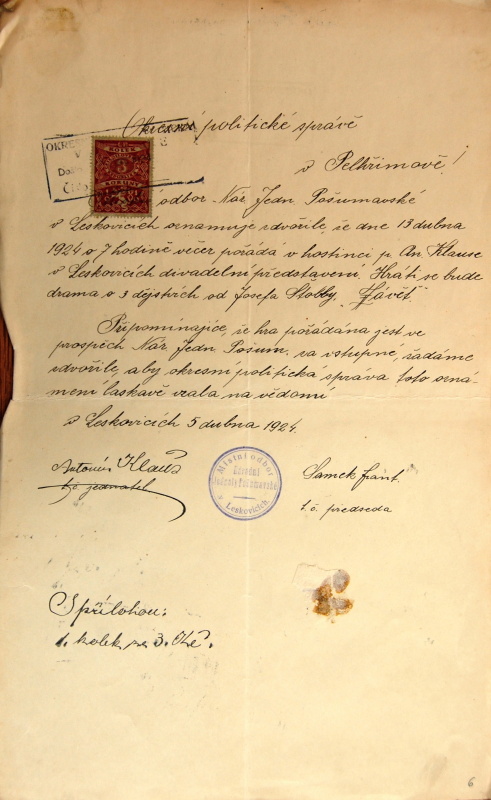 Okresní politické správě
v Pelhřimově!
OKRES
V
Došlo
Číslo
KOLEK
3
KORUNY
odbor Nár. Jedn. Pošumavské
v Leskovicích oznamuje zdvořile, že dne 13 dubna
1924 o 7 hodině večer pořádá v hostinci p. An. Klause
v Leskovicích divadelní představení. Hráti se bude
drama o 3 dějstvích od Josefa Stobby, Závěť.
Připomínajíce, že hra pořádána jest ve
prospěch Nár. Jedn. Pošum. za vstupné, žádáme
zdvořile, aby okresní politická správa toto ozná-
mení laskavě vzala na vědomí
V Leskovicích 5 dubna 1924.
Antonín Klaus
t.č. jednatel
Místní odbor
Národní
Jednoty Pošumavské
v Leskovicích.
Samek Frant.
t. č. předseda
S přílohou:
1. kolek na 3. Kč.
6